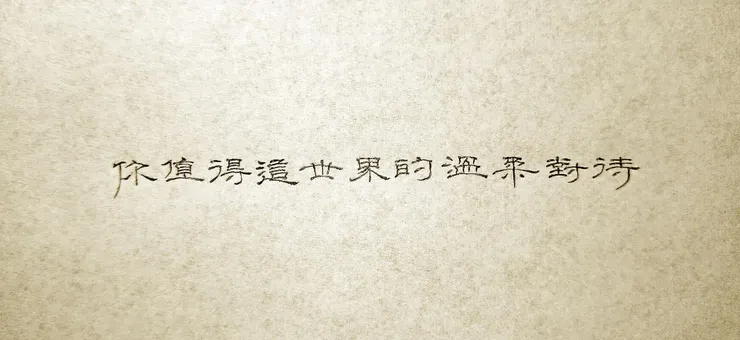 你值得這世界的溫柔對待